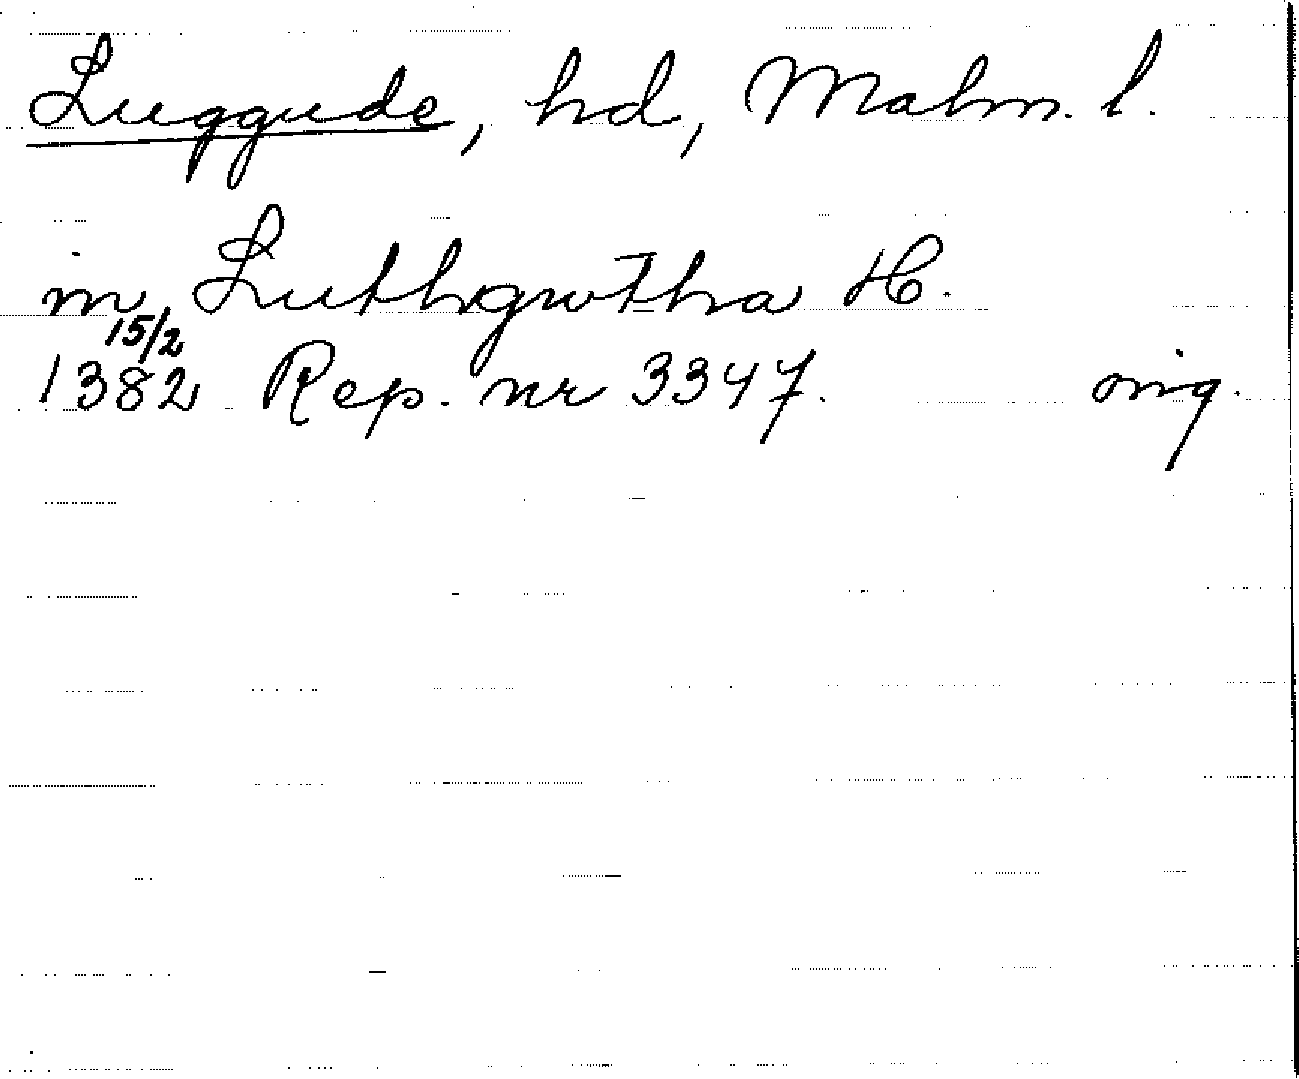 Luggude, hd, Malm. l.
in Luthgwtha H.
15/2
1382 Rep. nr 3347. orig.